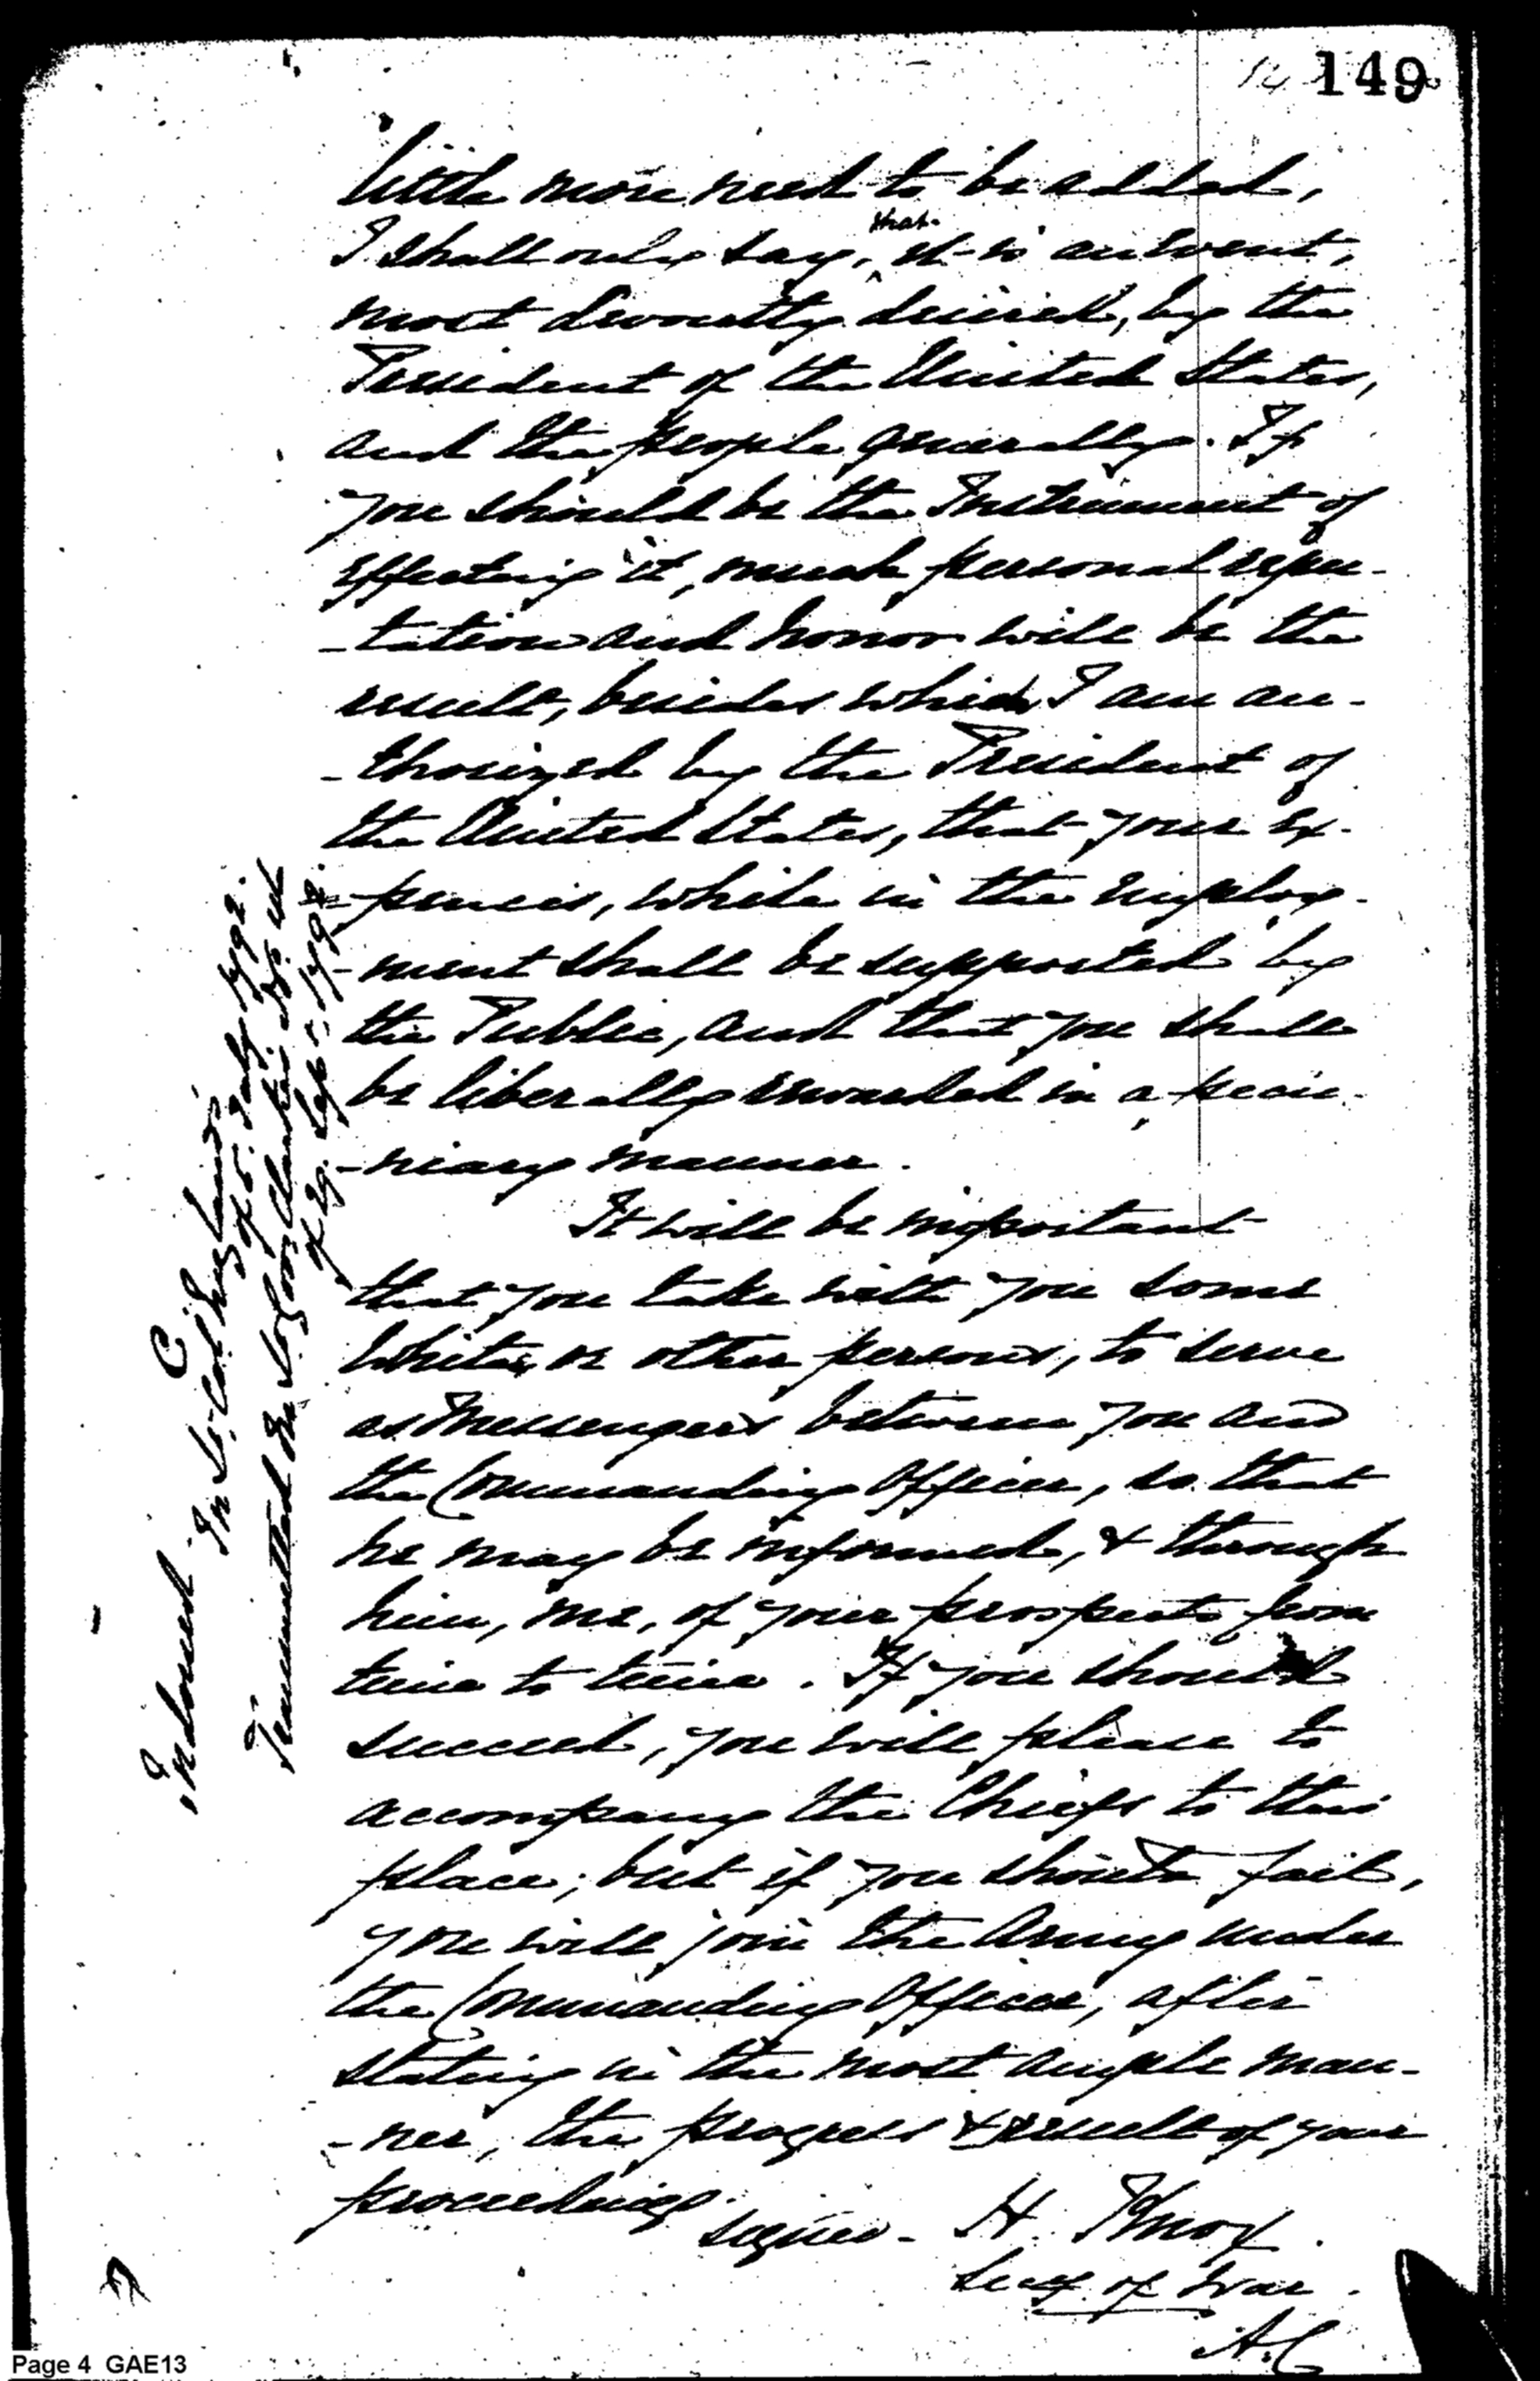 149
little more need to be added,
I shall only say, that it is an Event,
most devoutly desired, by the
President of the United States,
and the people generally. If
you should be the Instrument of
effecting it, much personal repu-
-tation and honor will be the
result, besides which I am au-
-thorized by the President of
the United States, that your ex-
-pences, while in the employ-
-ment shall be supported by
the Public, and that you shall
be liberally rewarded in a pecu-
-niary manner.
It will be important
that you take with you some
Whites, or other persons, to serve
as Messengers between you and
the Commanding Officer, so that
he may be informed, & through
him, me, of your prospects from
time to time. If you should
succeed, you will please to
accompany the Chiefs to this
place; but if you should fail,
you will join the Army under
the Commanding Officer, after
stating in the most ample man-
-ner, the progress & result of your
proceedings.
signed - H. Knox
Secy. of War.
A.C
C
Indorsed -
In Lt. Col. England's
of 5. July 1792.
Transmitted in Lt. Govr. Clarke's No.
of 29. Sept. 1792.
Page 4 GAE13